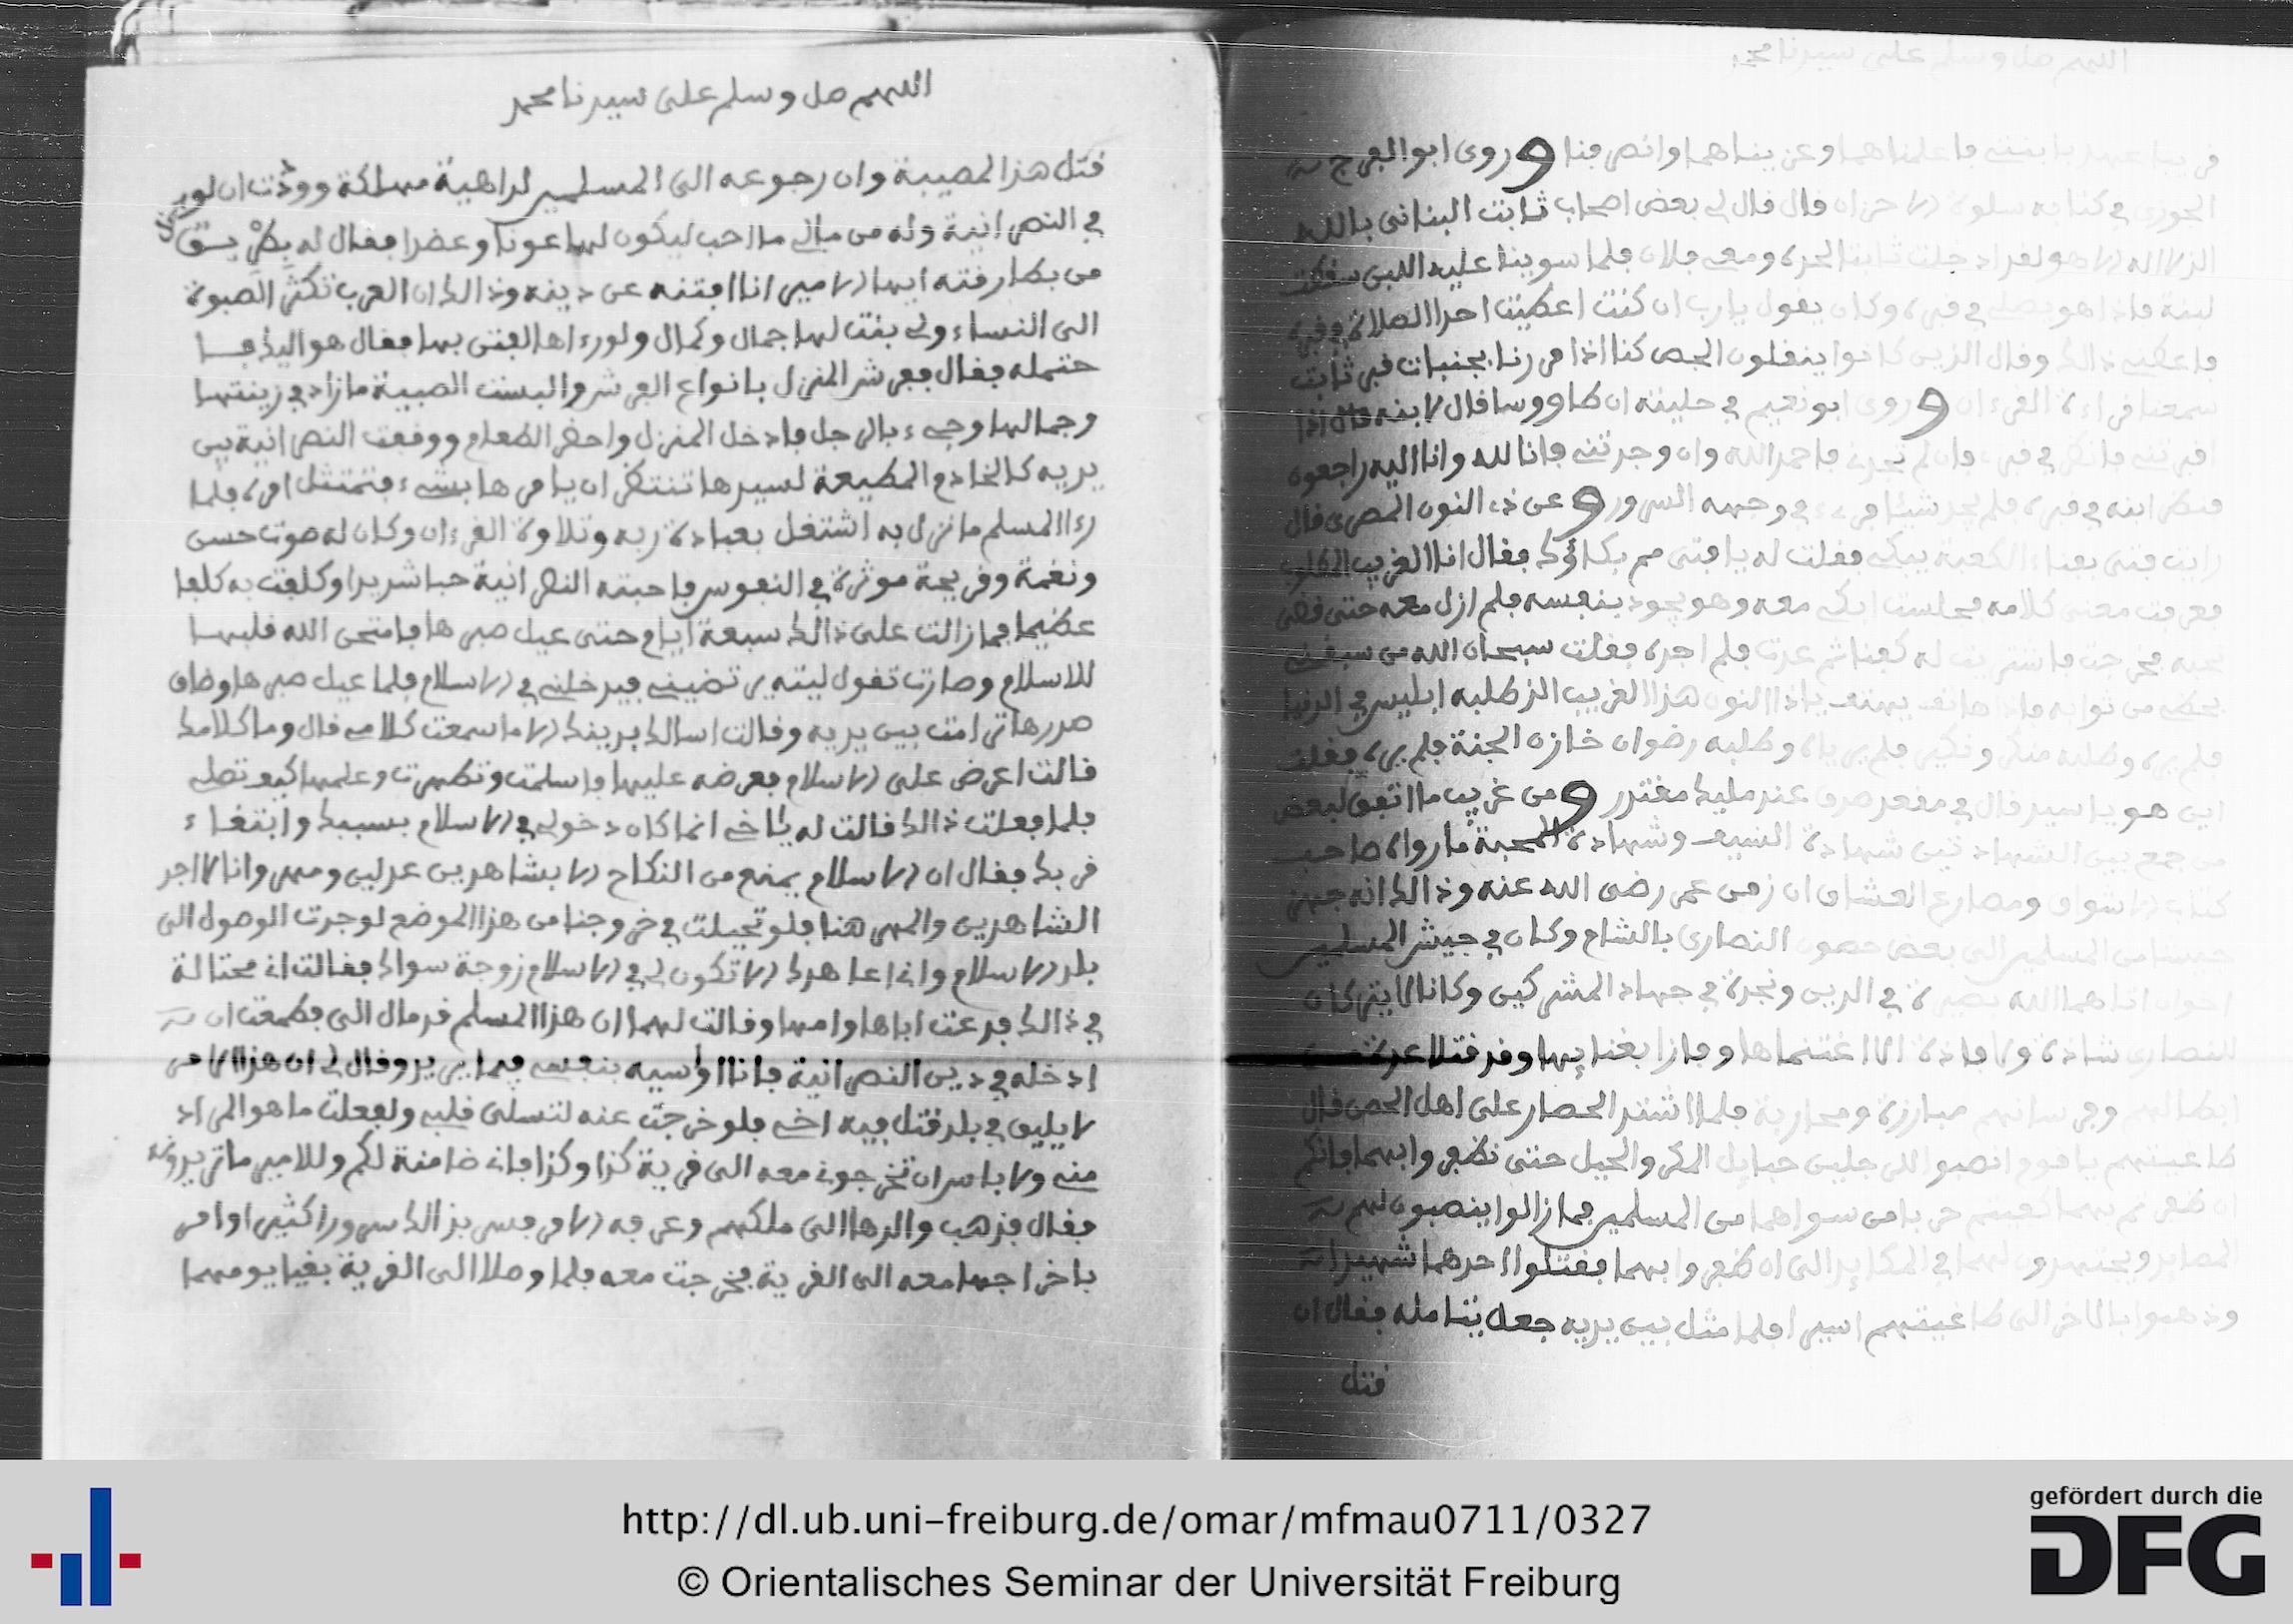 اللهم صل وسلم على سيدنا محمد
وروى ابو الفرج بن
الجوزي في كتابه سلوة الاحزان قال قال لي بعض اصحاب ثابت البناني بالله
الذي لا اله الا هو لقد ادخلت ثابتا لحده ومعي فلان فلما سوينا عليه اللبن سقطت
لبنة فاذا هو يصلي في قبره وكان يقول يا رب ان كنت اعطيت احدا الصلاة في قبره
فاعطني ذالك وقال الذين كانوا ينقلون الجص كنا اذا مررنا بجنبات قبر ثابت
سمعنا قراءة القرءان وروى ابو نعيم في حليته ان طاووسا قال لابنه قال اذا
اقبرتني فانظر في قبري فان لم تجدني فاحمد الله وان وجدتني فانا لله وانا اليه راجعون
فنظر ابنه في قبره فلم يجد شيئا في وجهه السرور وعن ذي النون المصري قال
رايت فتى بفناء الكعبة يبكي فقلت له يا فتى مم بكاؤك فقال انا الغريب المطلوب
فعرفت معنى كلامه فجلست ابكي معه وهو يجود بنفسه فلم ازل معه حتى قضى
نحبه فخرجت فاشتريت له كفنا ثم عدت فلم اجده فقلت سبحان الله من سبقني
بحظي من ثوابه فاذا هاتف يهتف يا ذا النون هذا الغريب الذي طلبه ابليس في الدنيا
فلم يره وطلبه منكر ونكير فلم يرياه وطلبه رضوان خازن الجنة فلم يره فقلت
اين هو يا سيدي قال في مقعد صدق عند مليك مقتدر ومن غريب ما اتفق لبعض
من جمع بين الشهادتين شهادة السيف وشهادة المحبة ما رواه صاحب
كتاب الاسواق ومصارع العشاق ان زمن عمر رضي الله عنه وذالك انه جهز
جيشا من المسلمين الى بعض حصون النصارى بالشام وكان في جيش المسلمين
اخوان اتاهما الله بصيرة في الدين ونجدة في جهاد المشركين وكانا لا يتركان
للنصارى شاذة ولا فاذة الا اغتنماها وفازا بغنايها وقد قتلا عدة من
ابطالهم وفرسانهم مبارزة ومحاربة فلما اشتد الحصار على اهل الحصن قال
طاغيتهم يا قوم انصبوا للرجلين حبايل المكر والحيل حتى تظفروا بهما فانكم
ان ظفرتم بهما كفيتم حربا من سواهما من المسلمين فما زالوا ينصبون لهم
المصايد ويجتهدون لهما في المكايد الى ان ظفروا بهما فقتلوا احدهما شهيدا
وذهبوا بالاخر الى طاغيتهم اسيرا فلما مثل بين يديه جعل يتامله فقال ان
قتل
اللهم صل وسلم على سيدنا محمد
قتل هذا لمصيبة وان رجوعه الى المسلمين لداهية مهلكة ووددت ان لو يدخل
في النصرانية وله من مالي ما احب ليكون لها عونا وعضدا فقال له بطريق
من بطارقته ايها الامير انا افتنه عن دينه وذالك ان العرب تكثر الصبوة
الى النساء ولي بنت لها جمال وكمال ولو رءاها لفتن بها فقال هو اليك فا
حتمله فقال ففرش المنزل بانواع الفرش والبست الصبية ما زاد في زينتها
وجمالها وجيء بالرجل فادخل المنزل واحضر الطعام ووقفت النصرانية بين
يديه كالخادم المطيعة لسيدها تنتظر ان يامرها بشيء فتمتثل امره فلما
رءا المسلم ما نزل به اشتغل بعبادة ربه وتلاوة القرءان وكان له صوت حسن
ونغمة وقريحة موثرة في النفوس فاحبته النصرانية حبا شديدا وكلفت به كلفا
عظيما فما زالت على ذالك سبعة ايام حتى عيل صبرها فامتحن الله قلبها
للاسلام وصارت تقول ليته يرتضيني فيدخلني في الاسلام فلما عيل صبرها وضاق
صدرها ترامت بين يديه وقالت اسالك بدينك الا ما سمعت كلامي قال وما كلامك
قالت اعرض علي الاسلام فعرضه عليها فاسلمت وتطهرت وعلمها كيف تصلي
فلما فعلت ذالك قالت له يا اخي انما كان دخولي في الاسلام بسببك وابتغاء
قربك فقال ان الاسلام يمنع من النكاح الا بشاهدين عدلين ومهر وانا لا اجد
الشاهدين والمهر هنا فلو تحيلت في خروجنا من هذا الموضع لوجدت الوصول الى
بلد الاسلام وانا اعاهدك الا تكون لي في الاسلام زوجة سواك فقالت اني محتالة
في ذالك فدعت اباها وامها وقالت لهما ان هذا المسلم قد مال الي فطمعت ان
ادخله في دين النصرانية فانا اواسيه بنفسي فيما يريد وقال لي ان هذا الامر
لا يليق في بلد قتل فيه اخي فلو خرجت عنه لتسلى قلبي ولفعلت ما هو المراد
مني ولا باس ان تخرجوني معه الى قرية كذا وكذا فاني ضامنة لكم وللامير ما تريدونه
فقال فذهب والدها الى ملكهم وعرفه الامر فسر بذالك سرورا كثيرا وامر
باخراجها معه الى القرية فخرجت معه فلما وصلا الى القرية بقيا يومهما
http://dl.ub.uni-freiburg.de/omar/mfmau0711/0327
© Orientalisches Seminar der Universität Freiburg
gefördert durch die
DFG